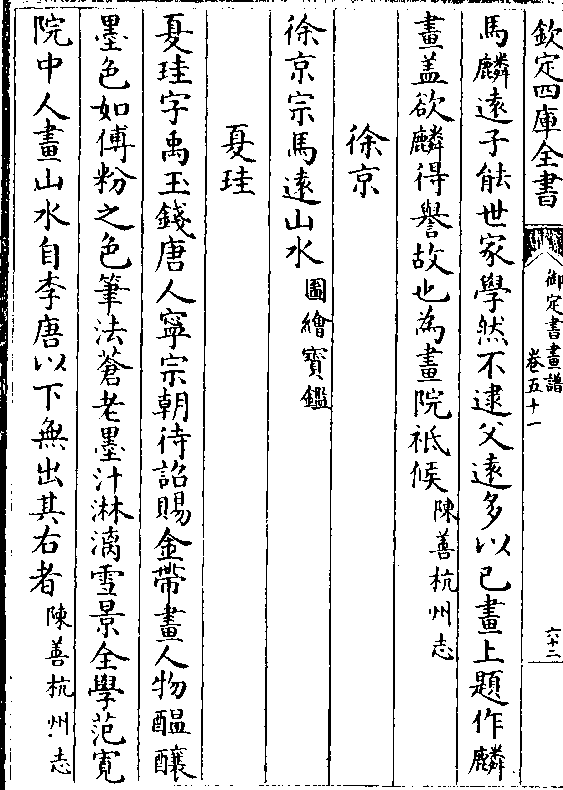 欽定四庫全書
御定書畫譜
卷五十一
六十二
馬麟遠子能世家學然不逮父遠多以己畫上題作麟
畫盖欲麟得譽故也為畫院祗候陳善杭州志
徐京
徐京宗馬遠山水圖繪寳鑑
夏珪
夏珪字禹玉錢唐人寧宗朝待詔賜金帶畫人物醖釀
墨色如傅粉之色筆法蒼老墨汁淋漓雪景全學范寛
院中人畫山水自李唐以下無出其右者陳善杭州志